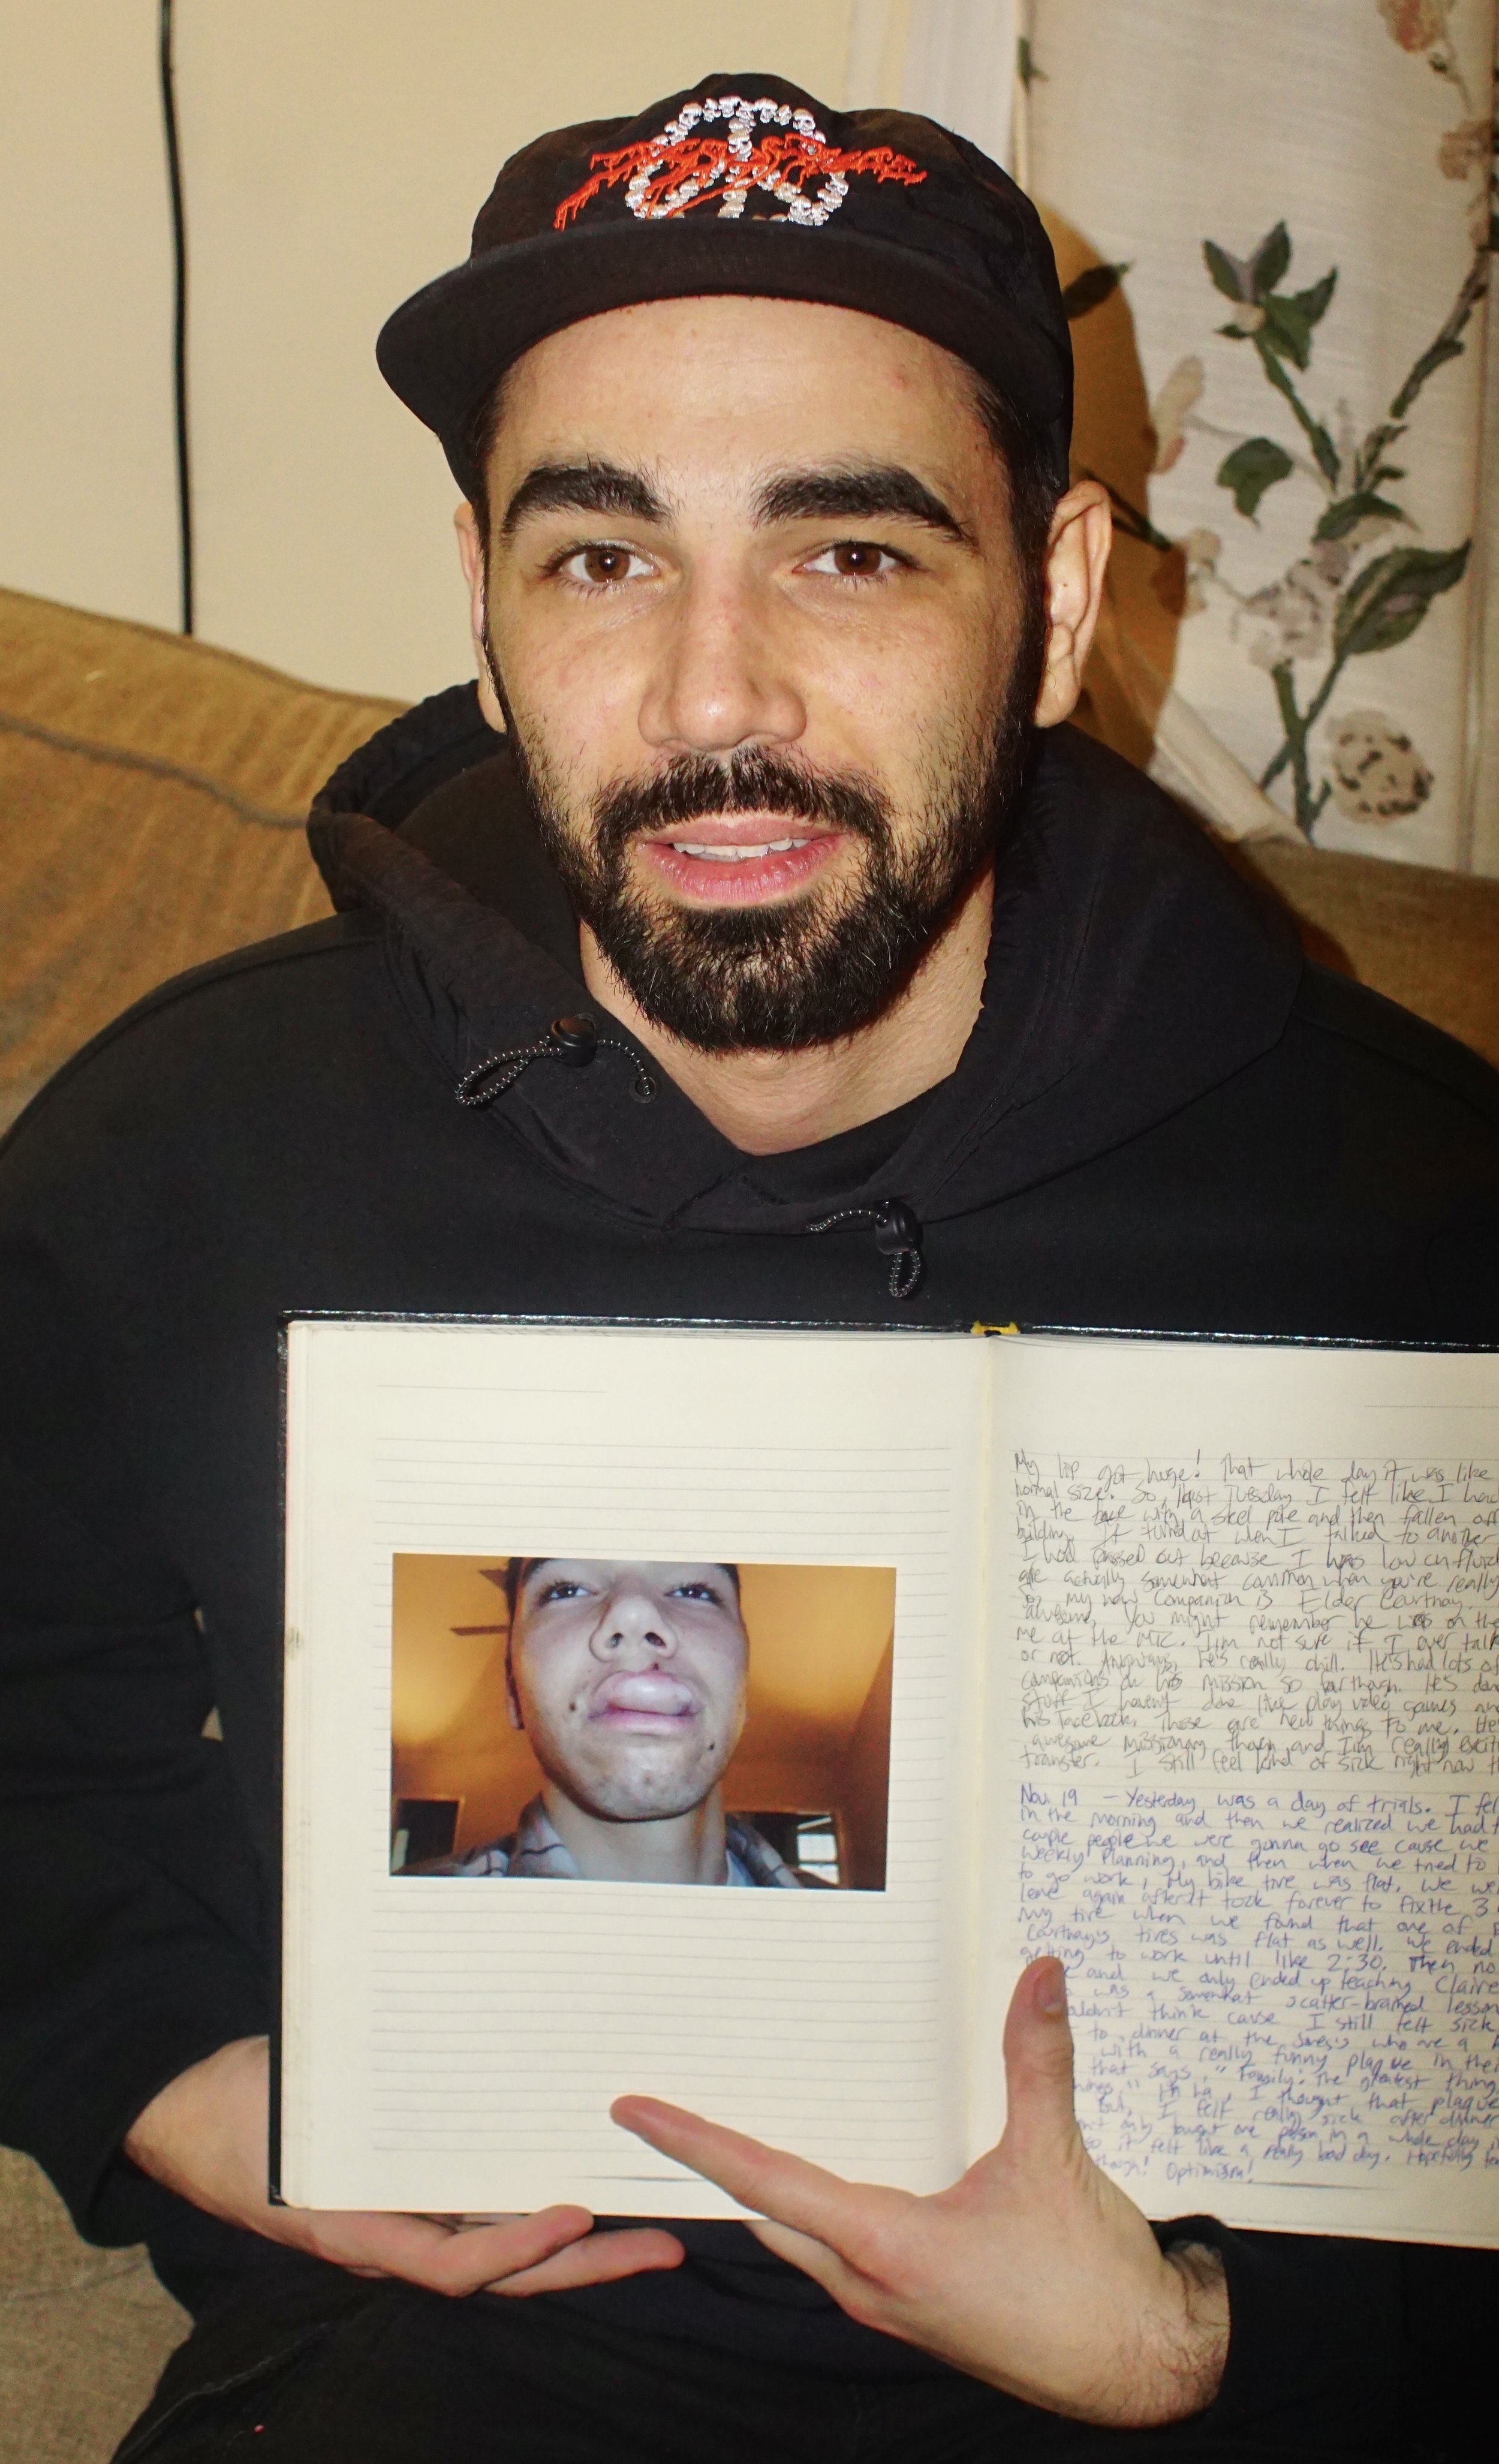 My lip got huge! That whole day it was like
normal size. So, last Tuesday I felt like I had
in the face with a steel pole and then fallen off
building. It turned out when I talked to another
I had passed out because I was low on fluid
are actually somewhat common when you're really
So, my new companion is Elder Courtnay.
awesome, you might remember he was on the
me at the MTC. I'm not sure if I ever talk
or not. Anyways, he's really chill. He's had lots of
companions on his mission so far though. He's done
stuff I haven't done like play video games and
his facebook. Those are new things to me. He
awesome missionary though and I'm really excit
transfer. I still feel kind of sick right now th
Nov. 19 - Yesterday was a day of trials. I fel
in the morning and then we realized we had t
couple people we were gonna go see cause we
weekly planning, and then when we tried to
to go work, my bike tire was flat. We we
leave again after it took forever to fix the 3
my tire when we found that one of
Courtnay's tires was flat as well. We ended
getting to work until like 2:30. Then no
and we only ended up teaching Claire
was a somewhat scatter-brained lesson
ouldn't think cause I still felt sick
to dinner at the Jones's who are a
with a really funny plaque in thei
that says, "Family: The greatest thing
" Ha ha, I thought that plaque
But, I felt really sick after dinner
only taught one person in a whole day
so it felt like a really bad day. Hopefully
though! Optimism!